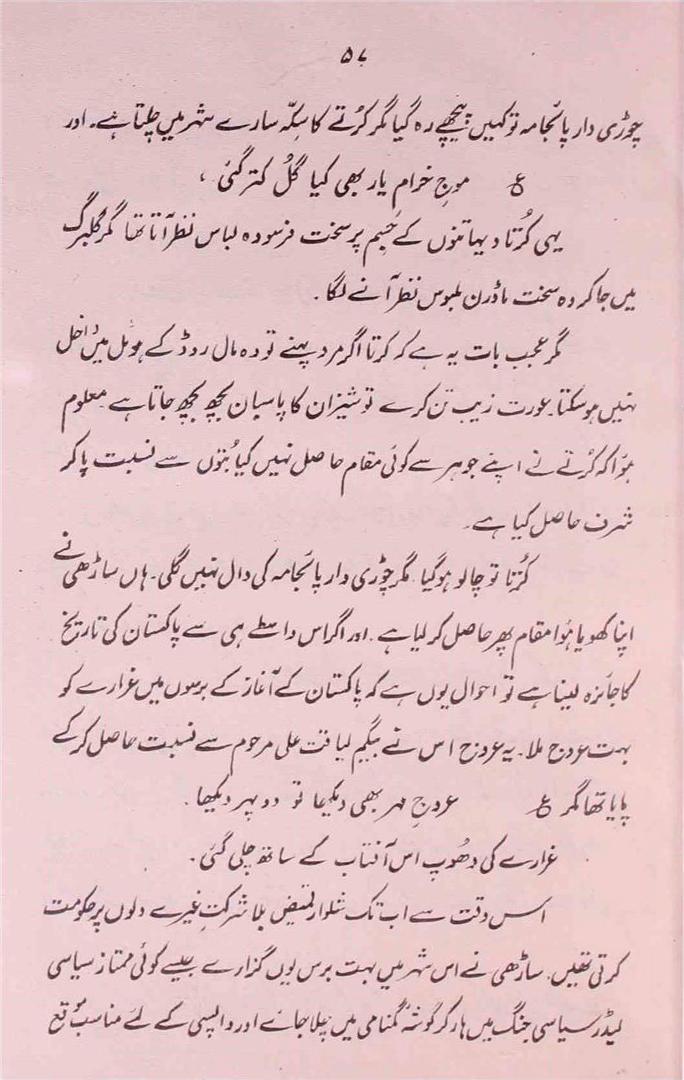 ۵۷
چوڑی دار پائجامہ تو کہیں پیچھے رہ گیا مگر کرُتے کا سکّہ سارے شہر میں چلتا ہے۔ اور
ع موجِ خرامِ یار بھی کیا گُل کتر گئی ،
یہی کُرتا دیہاتنوں کے جسم پر سخت فرسودہ لباس نظر آتا تھا مگر گلبرگ
میں جا کر وہ سخت ماڈرن ملبوس نظر آنے لگا۔
مگر عجب بات یہ ہے کہ کرتا اگر مرد پہنے تو وہ مال روڈ کے ہوٹل میں داخل
نہیں ہو سکتا۔ عورت زیب تن کرے تو شیزان کا پاسبان بچھ بچھ جاتا ہے۔ معلوم
ہوّا کہ کرُتے نے اپنے جوہر سے کوئی مقام حاصل نہیں کیا بُتوں سے نسبت پا کر
شرف حاصل کیا ہے۔
کرُتا تو چالو ہو گیا۔ مگر چوڑی دار پائجامہ کی دال نہیں گلی۔ ہاں ساڑھی نے
اپنا کھویا ہوُا مقام پھر حاصل کر لیا ہے۔ اور اگر اس واسطے ہی سے پاکستان کی تاریخ
کا جائزہ لینا ہے تو احوال یوں ہے کہ پاکستان کے آغاز کے برسوں میں غرارے کو
بہت عروج ملا۔ یہ عروج اس نے بیگم لیاقت علی مرحوم سے نسبت حاصل کر کے
پایا تھا مگر ع عروجِ مہر بھی دیکھا تو دوپہر دیکھا۔
غرارے کی دھوُپ اس آفتاب کے ساتھ چلی گئی۔
اس وقت سے اب تک شلوار قمیض بلا شرکتِ غیرے دلوں پر حکومت
کرتی تھیں۔ ساڑھی نے اس شہر میں بہت برس یوں گزارے جیسے کوئی ممتاز سیاسی
لیڈر سیاسی جنگ میں ہار کر گوشۂ گمنامی میں چلا جائے اور واپسی کے لئے مناسب موُقع